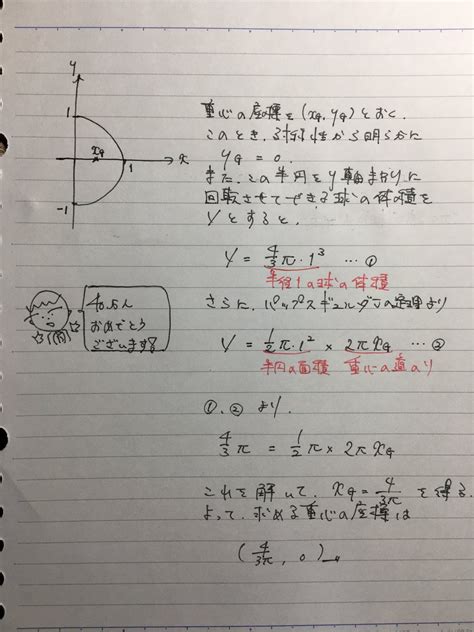 y
1
xG
1
x
-1
重心の座標を(xG, yG)とおく.
このとき、対称性から明らかに
yG = 0.
また、この半円をy軸まわりに
回転させてできる球の体積を
Vとすると、
V = 4/3 π・1³ … ①
半径1の球の体積
さらに、パップスギュルダンの定理より
V = 1/2 π・1² × 2π xG … ②
半円の面積 重心の道のり
40万人
おめでとう
ございます
①, ② より.
4/3 π = 1/2 π × 2π xG
これを解いて、xG = 4/3π を得る
よって、求める重心の座標は
(4/3π, 0)